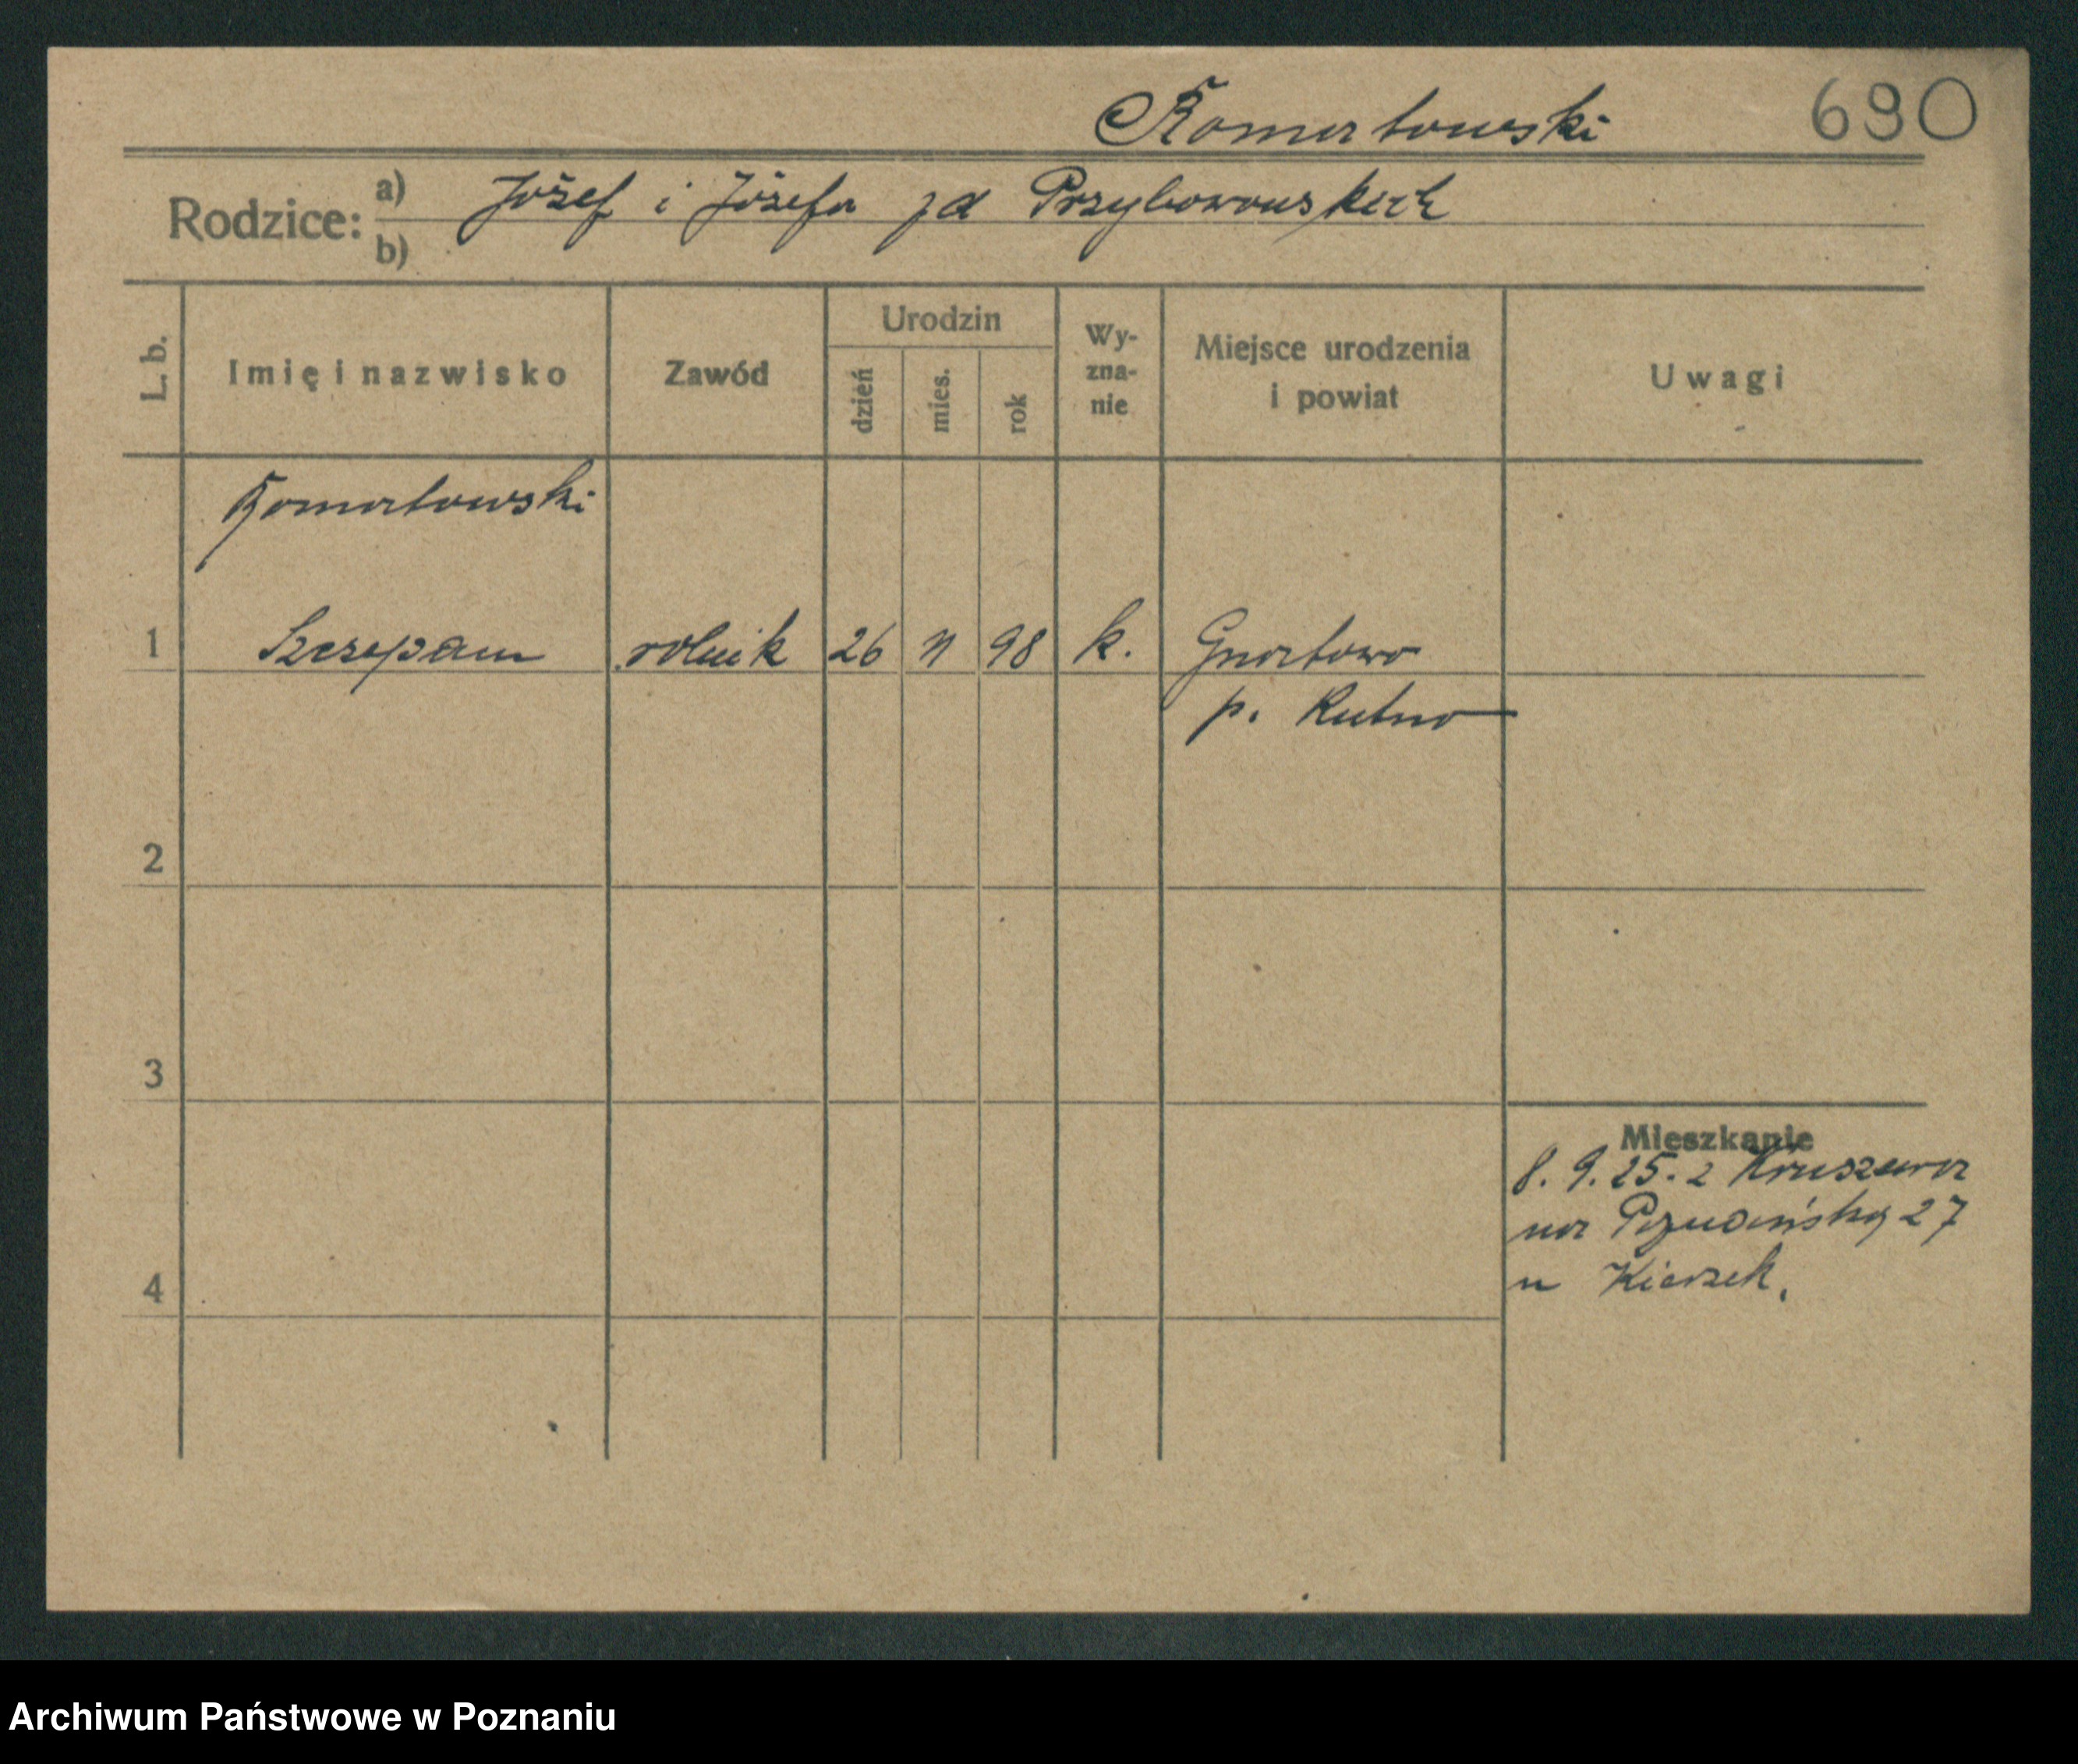 Komortowski 690
Rodzice: a) Józef i Józefa zd Przybowowskich
b)
L. b. Imię i nazwisko Zawód Urodzin dzień mies. rok Wy-zna-nie Miejsce urodzenia i powiat Uwagi
Komortowski
1 Szczepan rolnik 26 98 k. Gnortowo
p. Kutno
2
3
Mieszkanie
8. 9. 25. z Kruszewa
na Poznańską 27
4 u Kierzek.
Archiwum Państwowe w Poznaniu